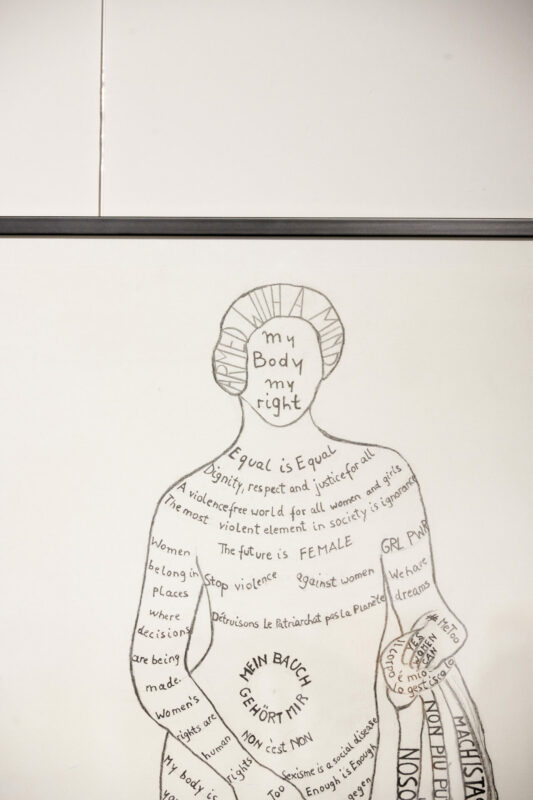 ARMED WITH A MIND
my
Body
my
right
Equal is Equal
Dignity, respect and justice for all
A violence free world for all women and girls
The most violent element in society is ignorance
The future is FEMALE
GRL PWR
Stop violence against women
Détruisons Le Patriarchat pas La Planète
Women
belong in
places
where
decisions
are being
made.
Women's
rights are
human
rights
We have
dreams
#MeToo
YES
WOMEN
CAN
il corpo
è mio
lo gestisco io
MEIN BAUCH
GEHÖRT MIR
NON c'est NON
Sexisme is a social disease
Enough is Enough
gegen
Too
My body is
NON PIÙ
MACHISTA